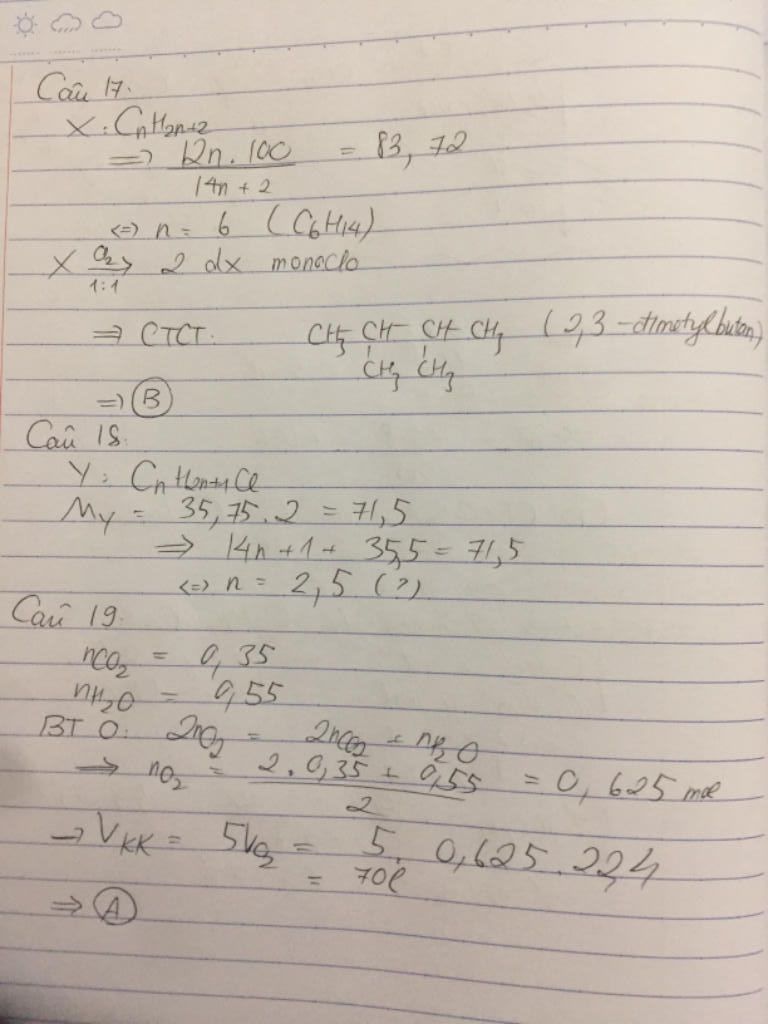 Câu 17.
X: CnH2n+2
=> 12n.100 / 14n+2 = 83,72
<=> n = 6 (C6H14)
X Cl2 → 1:1 2 dx monoclo
=> CTCT: CH3 CH - CH - CH3 (2,3-dimetylbutan)
CH3 CH3
=> B
Câu 18.
Y: CnH2n+1Cl
MY = 35,75.2 = 71,5
=> 14n+1+ 35,5 = 71,5
<=> n = 2,5 (?)
Câu 19.
nCO2 = 0,35
nH2O = 0,55
BT O: 2nO2 = 2nCO2 + nH2O
→ nO2 = 2.0,35 + 0,55 / 2 = 0,625 mol
→ VKK = 5VO2 = 5. 0,625.22,4
= 70l
=> A